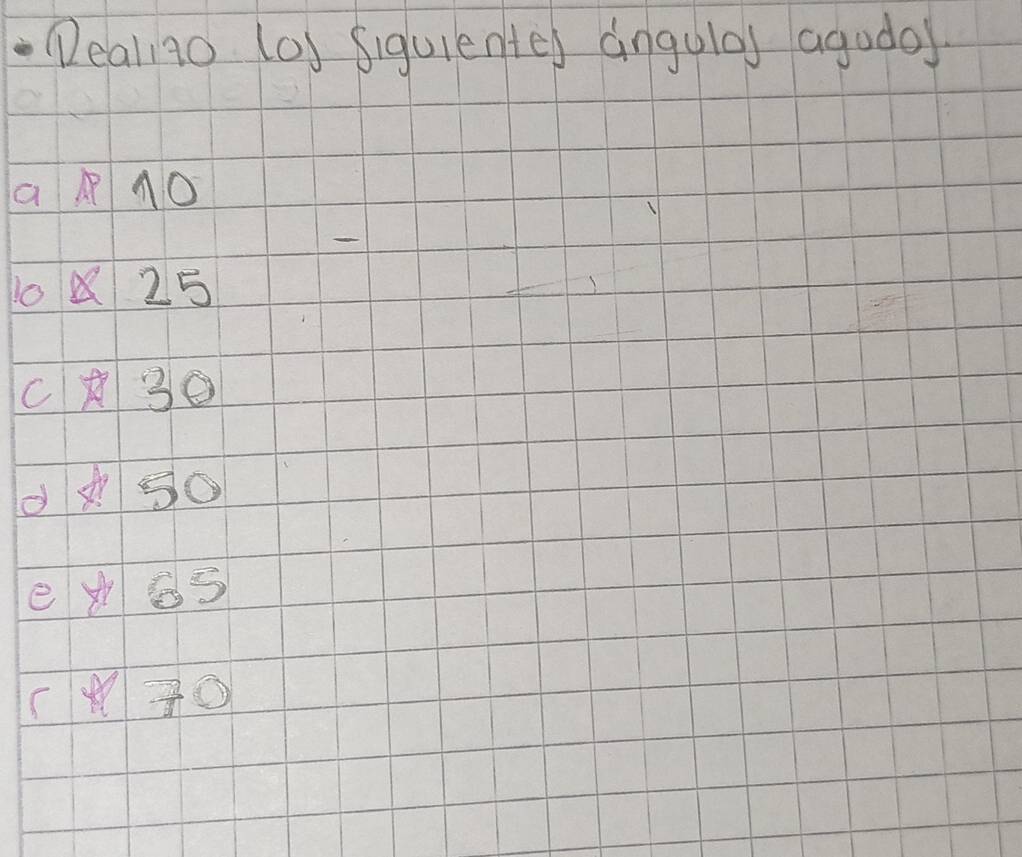 • Realizo los siguientes ángulos agudos.
a ☆ 10
b ☆ 25
c ☆ 30
d ☆ 50
e ☆ 65
f ☆ 70